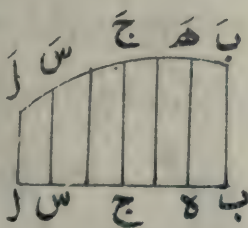 بَ هَ جَ سَ لَ
ب ه ج س ل